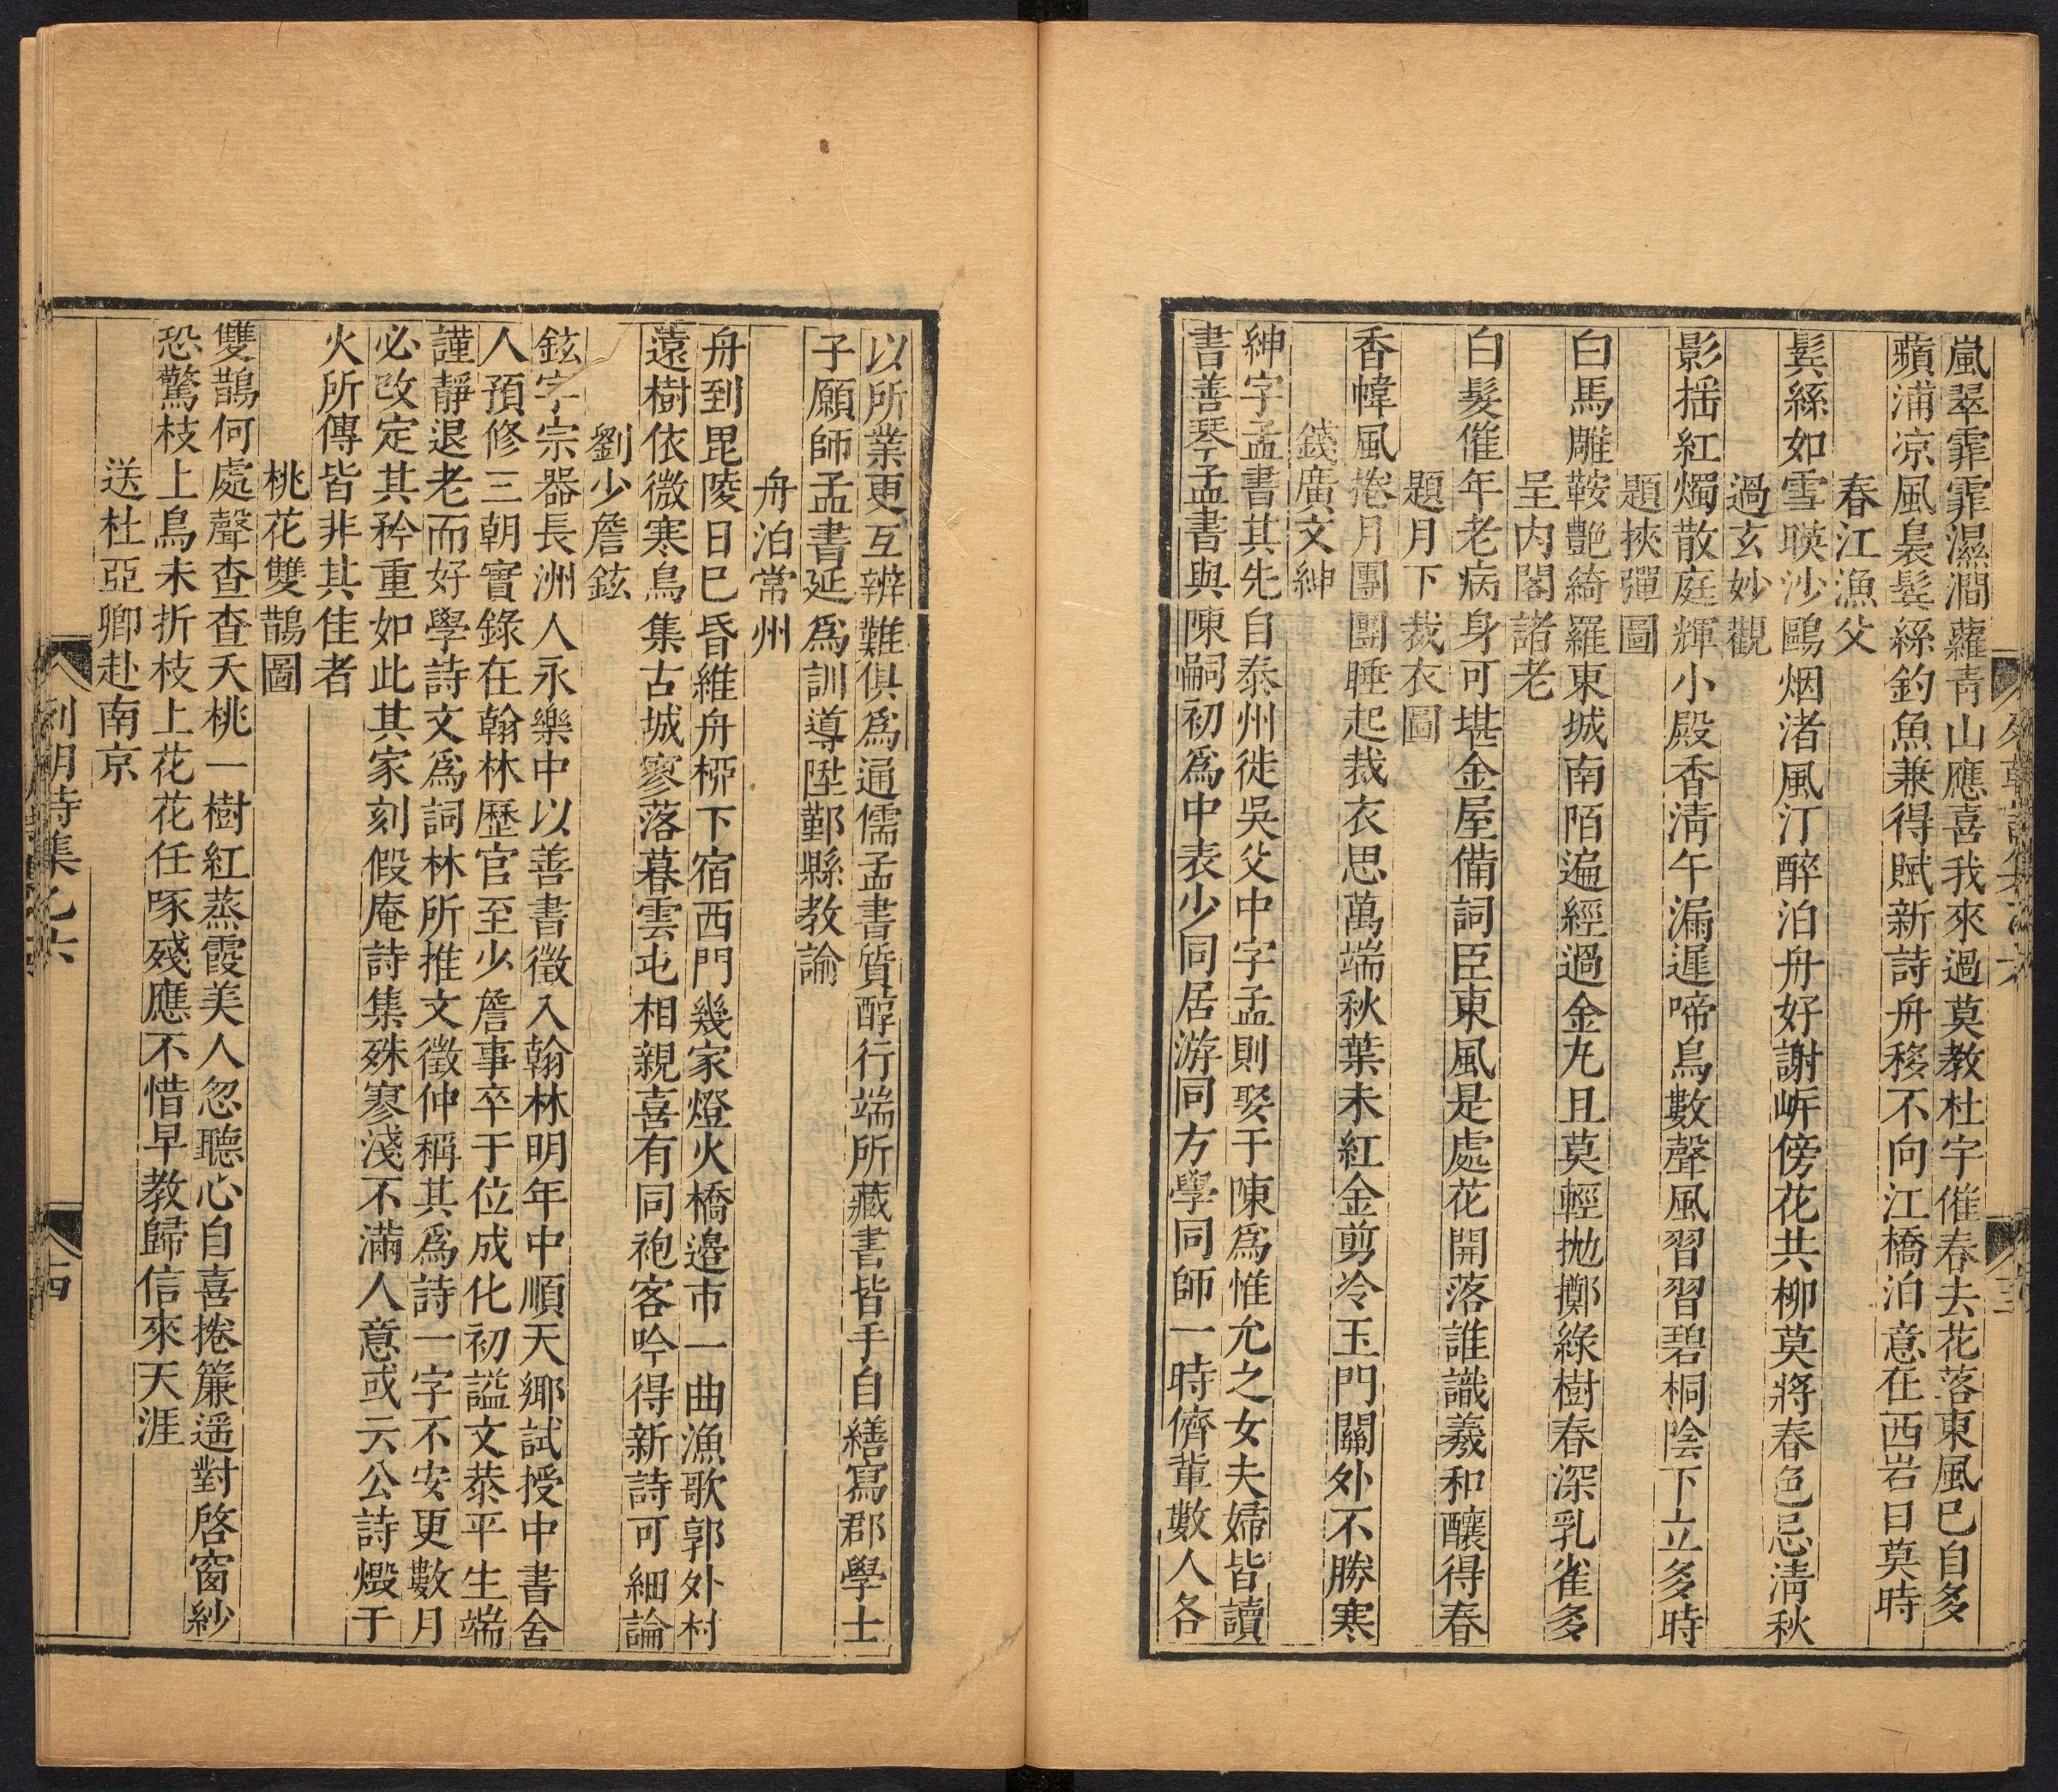 嵐翠霏霏濕澗蘿青山應喜我來過莫教杜宇催春去花落東風巳自多
蘋浦凉風裊鬂絲釣魚兼得賦新詩舟移不向江橋泊意在西岩日莫時
春江漁父
鬂絲如雪暎沙鷗烟渚風汀醉泊舟好謝㟁傍花共柳莫將春色忌淸秋
過玄妙觀
影揺紅燭散庭輝小殿香淸午漏遲啼鳥數聲風習習碧桐陰下立多時
題挾彈圖
白馬雕鞍艷綺羅東城南陌遍經過金丸且莫輕拋擲綠樹春深乳雀多
呈内閣諸老
白髮催年老病身可堪金屋備詞臣東風是處花開落誰識羲和釀得春
題月下裁衣圖
香幃風捲月團團睡起裁衣思萬端秋葉未紅金剪冷玉門關外不勝寒
錢廣文紳
紳字孟書其先自泰州徙吳父中字孟則娶于陳爲惟允之女夫婦皆讀
書善琴孟書與陳嗣初爲中表少同居游同方學同師一時儕輩數人各
以所業更互辨難俱爲通儒孟書質醇行端所藏書皆手自繕寫郡學士
子願師孟書延爲訓導陞鄞縣教諭
舟泊常州
舟到毘陵日巳昏維舟椏下宿西門幾家燈火橋邉市一曲漁歌郭外村
遠樹依微寒鳥集古城寥落暮雲屯相親喜有同袍客吟得新詩可細論
劉少詹鉉
鉉字宗器長洲人永樂中以善書徵入翰林明年中順天鄉試授中書舍
人預修三朝實錄在翰林歷官至少詹事卒于位成化初謚文恭平生端
謹靜退老而好學詩文爲詞林所推文徵仲稱其爲詩一字不安更數月
必改定其矜重如此其家刻假庵詩集殊寥淺不滿人意或云公詩燬于
火所傳皆非其佳者
桃花雙鵲圖
雙鵲何處聲查查夭桃一樹紅蒸霞美人忽聽心自喜捲簾遥對啓窗紗
恐驚枝上鳥未折枝上花花任啄殘應不惜早教歸信來天涯
送杜亞卿赴南京